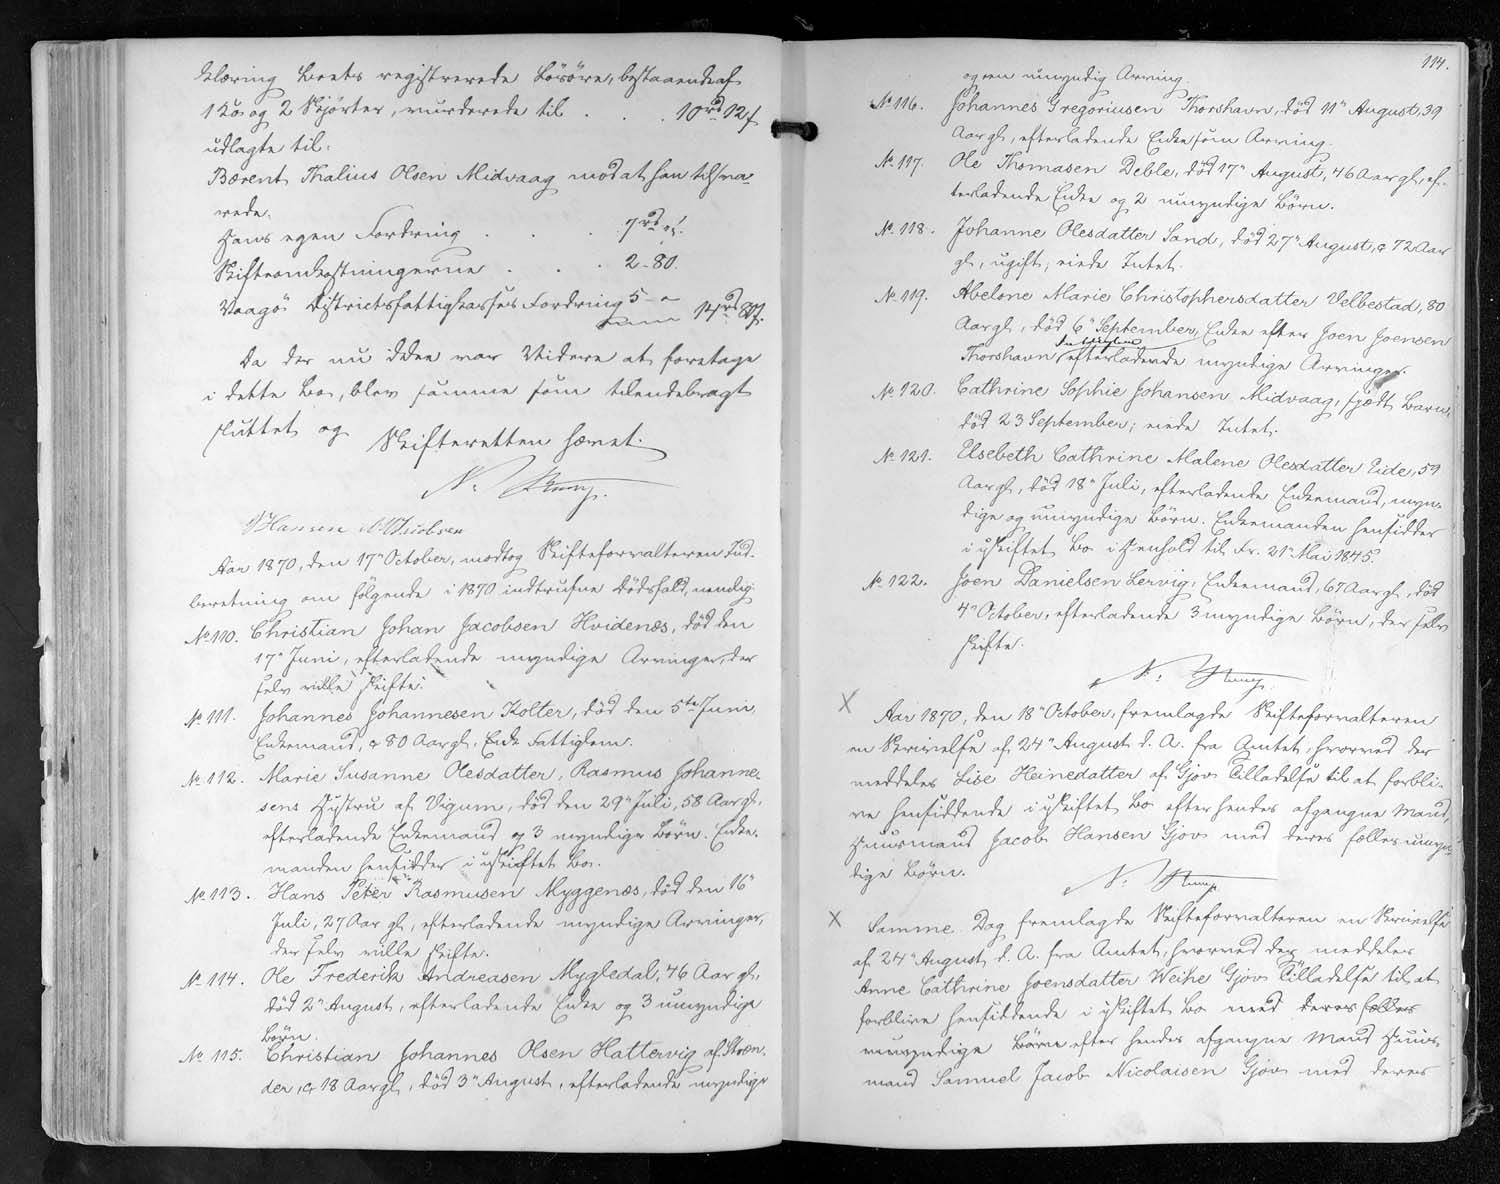 klæring Boets registrerede Løsøre, bestaaende af
1 Ko og 2 Skjorter, vurderede til . . . 10 rd 12 f
udlagte til:
Bærent Thalius Olsen Midvaag mod at han tilsva-
rede.
Hans egen Fordring . . . 7 rd
Skifteomkostningerne . . . 2 - 80.
Vaagø Districtsfattigkasses Fordring 5 - "
14 rd 80 f.
Da der nu ikke var Videre at foretage
i dette Bo, blev samme som tilendebragt
sluttet og Skifteretten hævet.
N:
Hansen Jacobsen
Aar 1870, den 17" October, modtog Skifteforvalteren Ind-
beretning om følgende i 1870 indtrufne Dødsfald, nemlig:
No 110. Christian Johan Jacobsen Hvidenæs, død den
17" Juni, efterladende myndige Arvinger, der
selv ville skifte.
No 111. Johannes Johannesen Kolter, død den 5te Juni,
Enkemand, 80 Aar gl. Fattiglem.
No 112. Marie Susanne Olesdatter, Rasmus Johanne-
sens Hustru af Vigum, død den 29" Juli, 58 Aar gl.,
efterladende Enkemand og 3 myndige Børn. Enke-
manden hensidder i uskiftet Bo.
No 113. Hans Peter Rasmusen Myggenæs, død den 16"
Juli, 27 Aar gl., efterladende myndige Arvinger,
der selv ville skifte.
No 114. Ole Frederik Andreasen Mygledal, 46 Aar gl.,
død 2" August, efterladende Enke og 3 umyndige
Børn.
No 115. Christian Johannes Olsen Hattervig af Stræn-
der, 18 Aar gl., død 3" August, efterladende myndige
114.
og en umyndig Arving.
No 116. Johannes Gregoriusen Thorshavn, død 11" August, 39
Aar gl., efterladende Enke som Arving.
No 117. Ole Thomasen Deble, død 17" August, 46 Aar gl., ef-
terladende Enke og 2 umyndige Børn.
No 118. Johanne Olesdatter Sand, død 27" August, 72 Aar
gl., ugift, eiede Intet.
No 119. Abelone Marie Christophersdatter Velbestad, 80
Aar gl., død 6" September, Enke efter Joen Joensen
Thorshavn, efterladende myndige Arvinger.
No 120. Cathrine Sophie Johansen Midvaag, spædt Barn,
død 23 September; eiede Intet.
No 121. Elsebeth Cathrine Malene Olesdatter Eide, 59
Aar gl., død 18" Juli, efterladende Enkemand, myn-
dige og umyndige Børn. Enkemanden hensidder
i uskiftet Bo i Henhold til Fr. 21" Mai 1845.
No 122. Joen Danielsen Lervig, Enkemand, 67 Aar gl., død
4" October, efterladende 3 myndige Børn, der selv
skifte.
N:
X Aar 1870, den 18" October, fremlagde Skifteforvalteren
en Skrivelse af 24" August d. A. fra Amtet, hvorved der
meddeles Lise Heinedatter af Gjov Tilladelse til at forbli-
ve hensiddende i uskiftet Bo efter hendes afgangne Mand,
Huusmand Jacob Hansen Gjov med deres fælles umyn-
dige Børn.
N:
X Samme Dag fremlagde Skifteforvalteren en Skrivelse
af 24" August d. A. fra Amtet, hvorved der meddeles
Anne Cathrine Joensdatter Weihe Gjov Tilladelse til at
forblive hensiddende i uskiftet Bo med deres fælles
umyndige Børn efter hendes afgangne Mand Huus-
mand Samuel Jacob Nicolaisen Gjov med deres